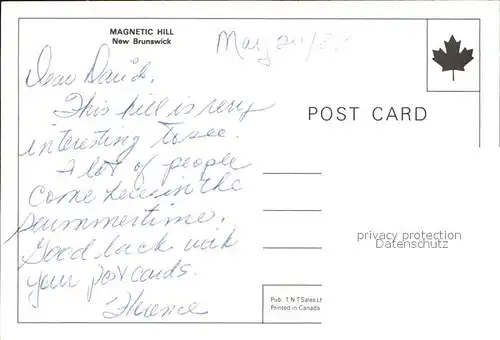 MAGNETIC HILL
New Brunswick
May
POST CARD
Dear David,
This hill is very
interesting to see.
A lot of people
come here in the
summertime.
Good luck with
your postcards.
privacy protection
Datenschutz
Pub. T.N.T Sales Lt
Printed in Canada